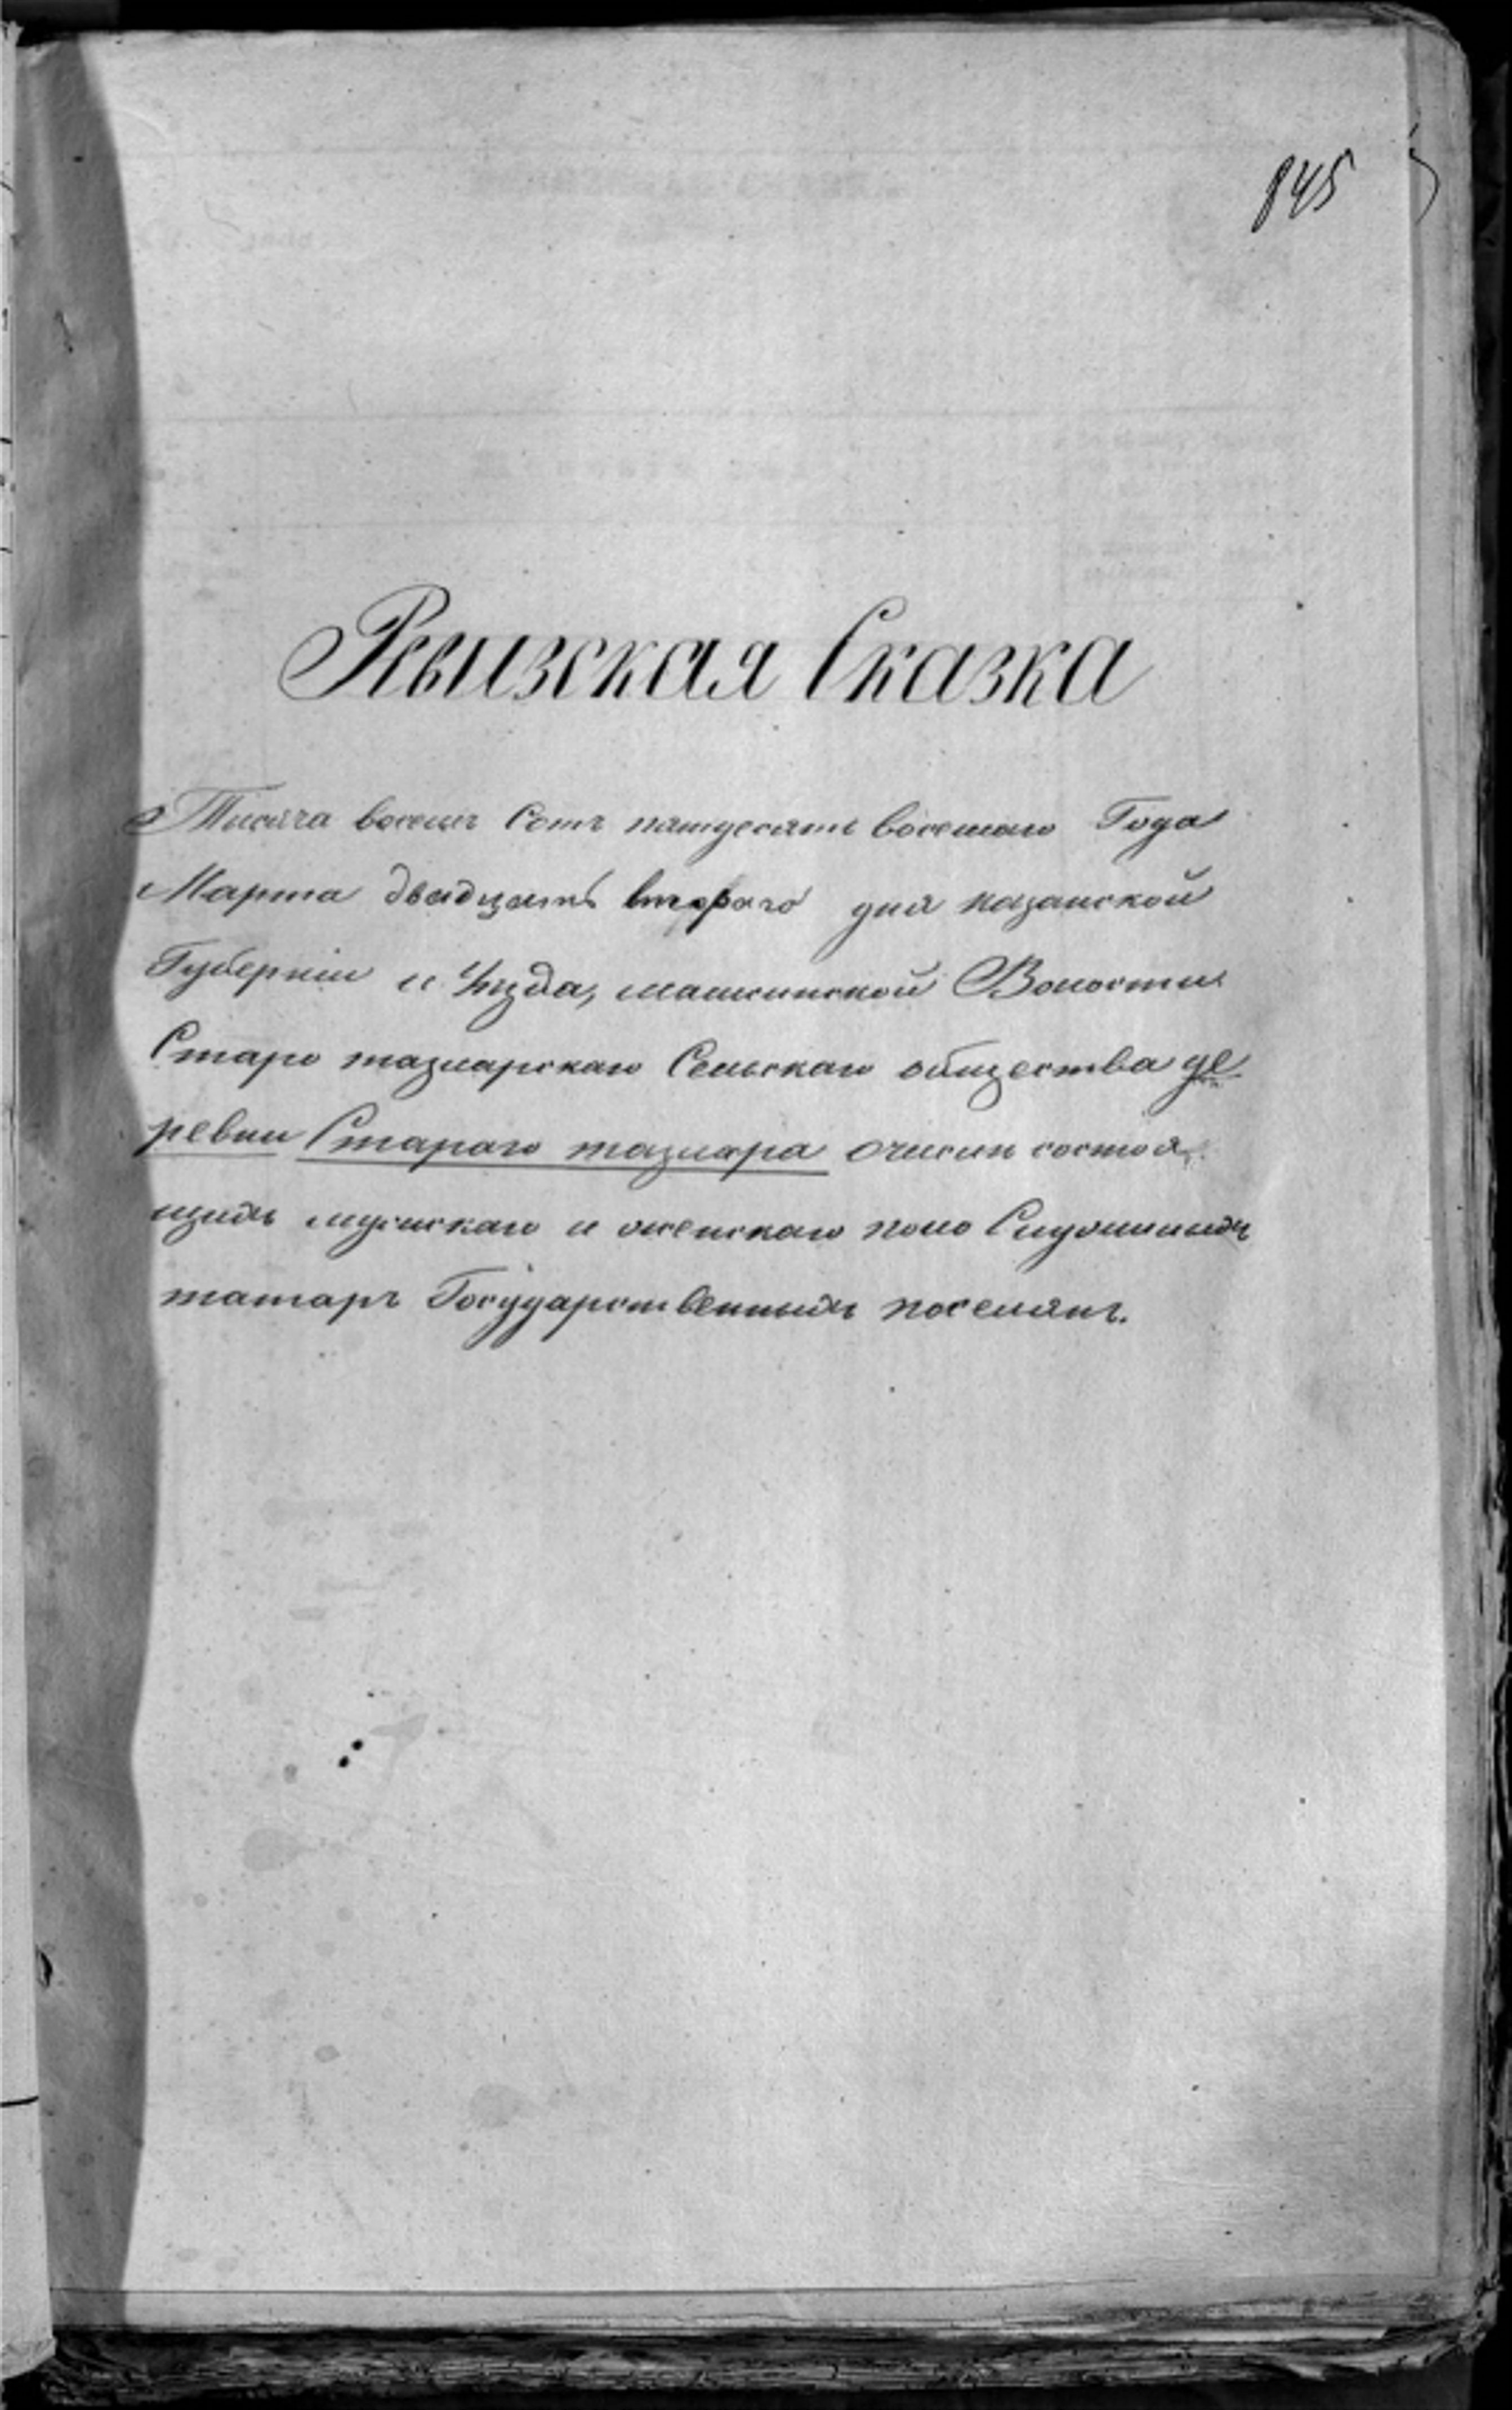 845
Ревизская Сказка
Тисяча восемь Сотъ пятдесятъ восьмаго Года
Марта двадцать втораго дня казанской
Губерніи и Уезда, машкинской Волости
Старо тазларскаго Сельскаго общества де
ревни Стараго тазлара очисли состоя
щихъ мужскаго и женскаго пола Служилыхъ
татаръ Государственныхъ поселянъ.